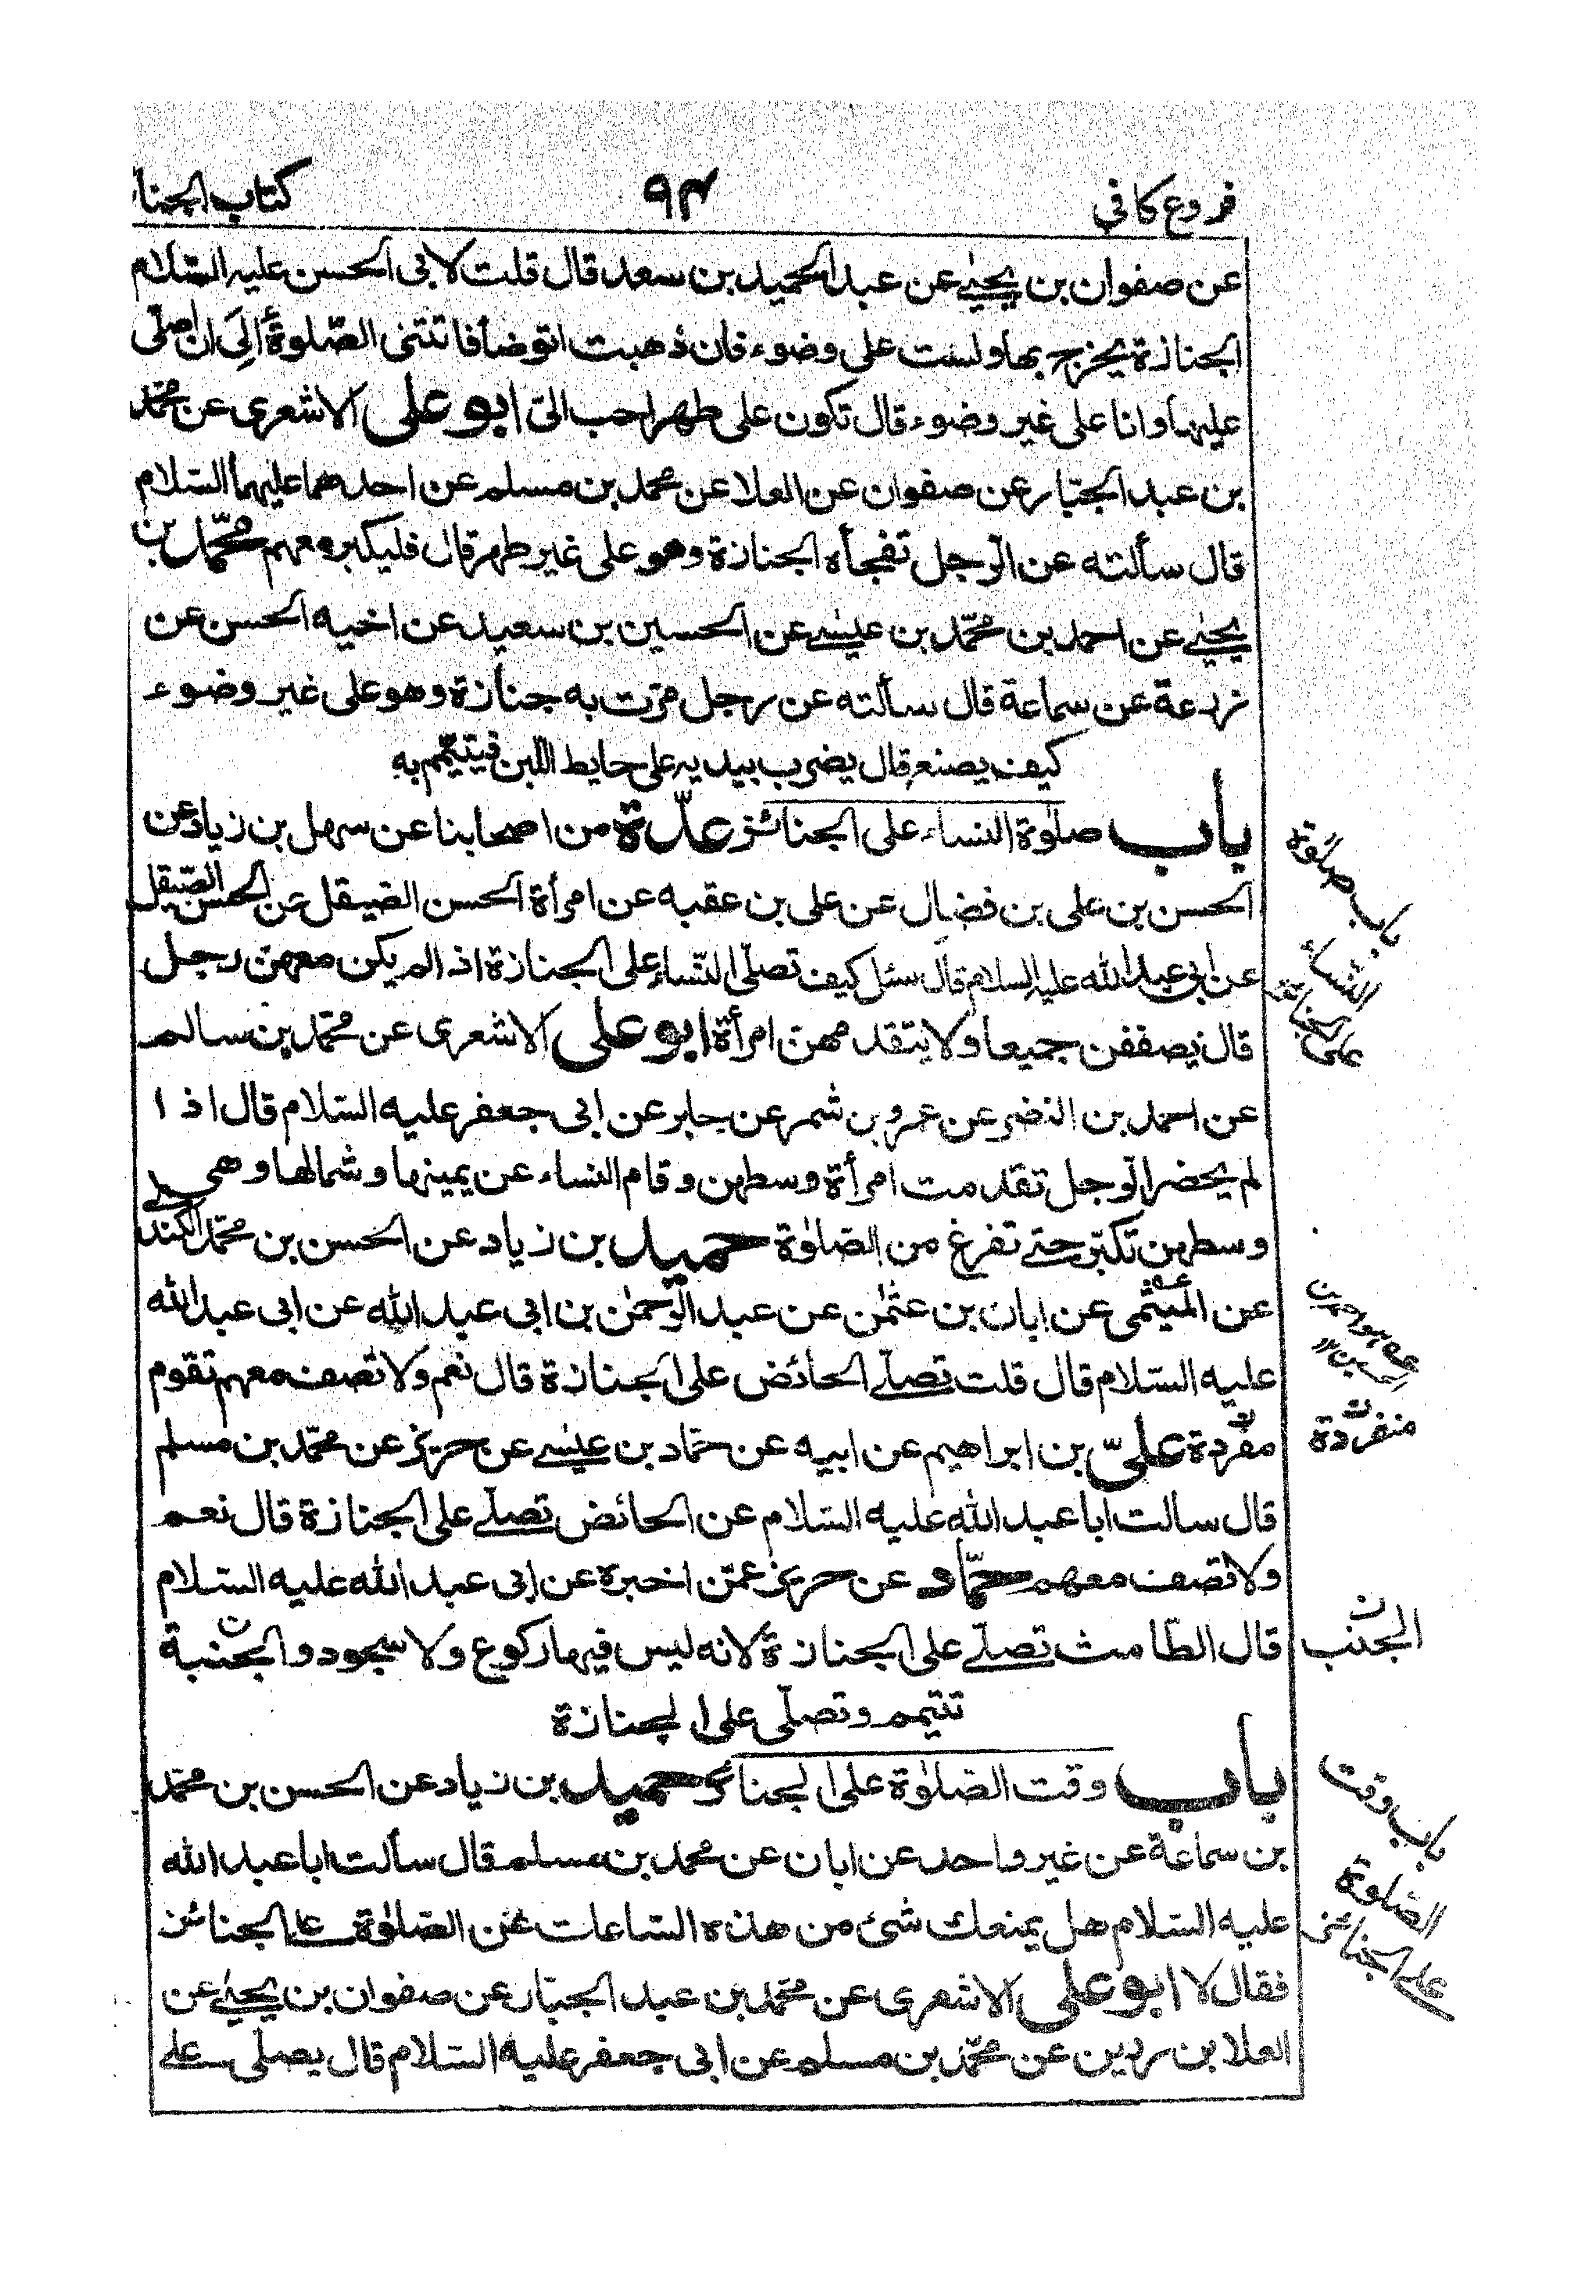 فروع كافي
٩٤
كتاب الجنا
عن صفوان بن يحيى عن عبد الحميد بن سعد قال قلت لابي الحسن عليه السّلام
الجنازة يخرج بها ولست على وضوء فان ذهبت اتوضأ فاتتنى الصّلوة أَلِيَ ان اصلّى
عليها وانا على غير وضوء قال تكون على طهر احب الىّ ابو على الاشعرى عن محمّد
بن عبد الجبّار عن صفوان عن العلا عن محمد بن مسلم عن احدهما عليهما السّلام
قال سألته عن الرّجل تفجأه الجنازة وهو على غير طهر قال فليكبر معهم محمّد بن
يحيى عن احمد بن محمّد بن عيسى عن الحسين بن سعيد عن اخيه الحسن عن
زرعة عن سماعة قال سألته عن رجل مرّت به جنازة وهو على غير وضوء
كيف يصنع قال يضرب بيديه على حايط اللّبن فيتيمّم به
باب صلوٰة النساء على الجنائز عدّة من اصحابنا عن سهل بن زياد عن
الحسن بن على بن فضال عن على بن عقبه عن امرأة الحسن الصيقل عن الحسن الصّيقل
عن ابى عبد الله عليه السلام قال سئل كيف تصلّى النّساء على الجنازة اذا لم يكن معهنّ رجل
قال يصففن جميعا ولا يتقدمهنّ امرأة ابو على الاشعرى عن محمّد بن سالم
عن احمد بن النضر عن عمرو بن شمر عن جابر عن ابى جعفر عليه السّلام قال اذا
لم يحضر الرّجل تقدمت امرأة وسطهن وقام النساء عن يمينها وشمالها وهى
وسطهن تكبّر حتى تفرغ من الصّلوٰة حميد بن زياد عن الحسن بن محمّد الكندى
عن الميثمى عن ابان بن عثمٰن عن عبد الرّحمٰن بن ابى عبد الله عن ابى عبد الله
عليه السّلام قال قلت تصلّى الحائض على الجنازة قال نعم ولا تصف معهم تقوم
مفردة علىّ بن ابراهيم عن ابيه عن حمّاد بن عيسى عن حريز عن محمّد بن مسلم
قال سالت ابا عبد الله عليه السّلام عن الحائض تصلّى على الجنازة قال نعم
ولا تصف معهم حمّاد عن حريز عمّن اخبره عن ابى عبد الله عليه السّلام
قال الطّامث تصلّى على الجنازة لانه ليس فيها ركوع ولا سجود والجنبة
تتيمم وتصلّى على الجنازة
باب وقت الصّلوٰة على الجنائز حميد بن زياد عن الحسن بن محمّد
بن سماعة عن غير واحد عن ابان عن محمد بن مسلم قال سألت ابا عبد الله
عليه السّلام هل يمنعك شئ من هذه السّاعات عن الصّلوٰة على الجنائز
فقال لا ابو على الاشعرى عن محمّد بن عبد الجبّار عن صفوان بن يحيى عن
العلا بن رزين عن محمّد بن مسلم عن ابى جعفر عليه السّلام قال يصلّى على
باب صلوة
النّساء
على الجنازة
منفردة
الجنب
باب وقت
الصّلوٰة
على الجنائز